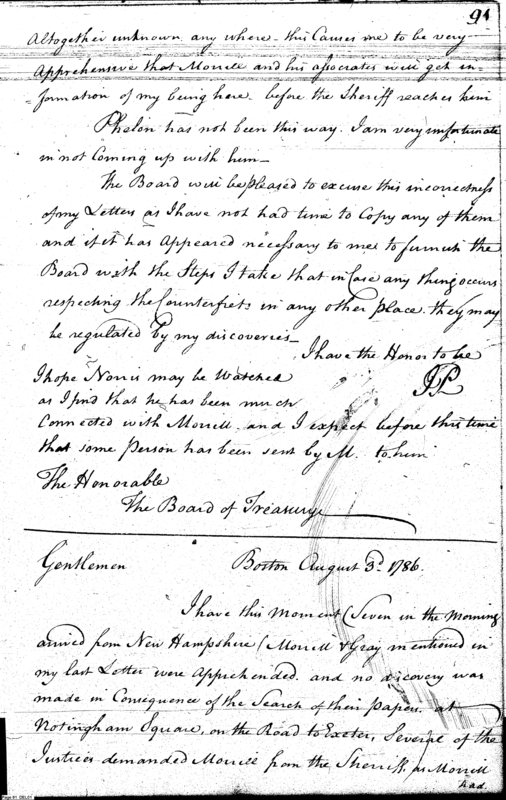 91
Altogether unknown any where - this Causes me to be very
Apprehensive that Morrill and his associates will get in-
=formation of my being here before the Sheriff reaches him
Phelon has not been this way. I am very unfortunate
in not Coming up with him -
The Board will be pleased to excuse this incorrectness
of my Letters as I have not had time to Copy any of them
and if it has Appeared necessary to me to furnish the
Board with the Steps I take that in Case any thing occurs
respecting the Counterfeits in any other place they may
be regulated by my discoveries -
I have the Honor to be
I hope Norris may be Watched
as I find that he has been much
Connected with Morrill and I expect before this time
that some Person has been sent by M. to him
The Honorable
The Board of Treasury
Gentlemen Boston August 3d. 1786.
I have this Moment (Seven in the Morning
arived from New Hampshire (Morrill & Gray mentioned in
my last Letter were Apprehended. and no discovery was
made in Consequence of the Search of their Papers. at
Notingham Square, on the Road to Exeter, Several of the
Justices demanded Morrill from the Sherriff, as Morrill
had